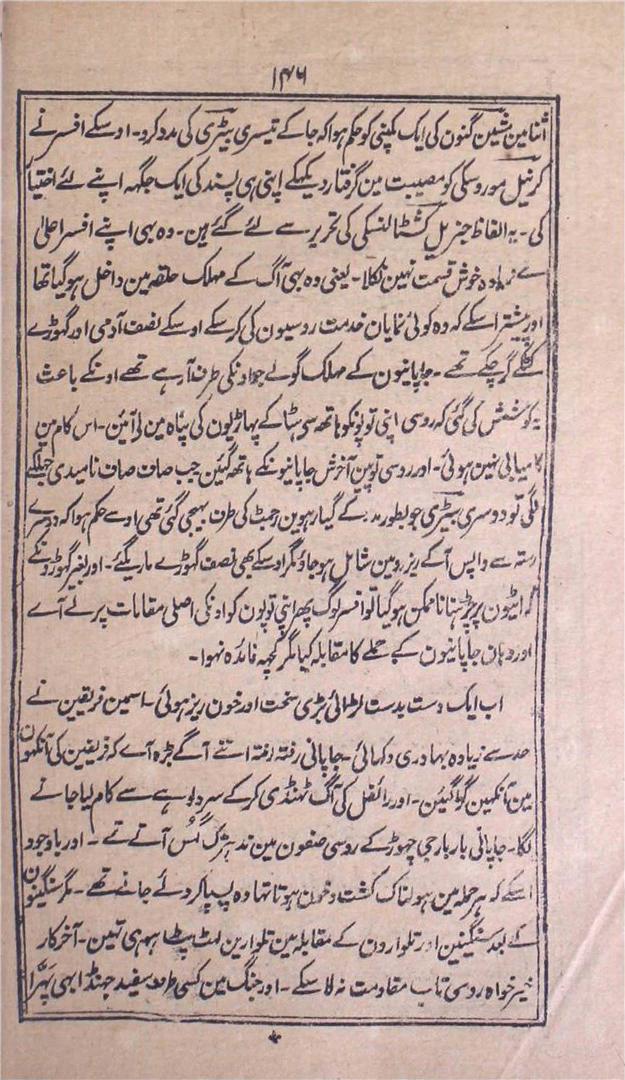 ۱۴۶
اثنا مین مشین گنون کی ایک کمپنی کو حکم ہوا کہ جا کے تیسری بیٹری کی مدد کرو۔ اوسکے افسر نے
کرنیل موروسکی کو مصیبت مین گرفتار دیکھکے اپنی ہی پسند کی ایک جگہہ اپنے لئے اختیار
کی۔ یہ الفاظ جنرل کشٹالنسکی کی تحریر سے لئے گئے ہین۔ وہ بھی اپنے افسر اعلیٰ
سے زیادہ خوش قسمت نہین نکلا۔ یعنی وہ بھی آگ کے مہلک حلقہ مین داخل ہو گیا تھا
اور پیشتر اسکے کہ وہ کوئی نمایان خدمت روسیون کی کر سکے اوسکے نصف آدمی اور گھوڑے
کٹکے گر چکے تھے۔ جاپانیون کے مہلک گولے جو اونکی طرف آرہے تھے اونکے باعث
یہ کوشش کی گئی کہ روسی اپنی توپونکو ہاتھہ سے ہٹا کے پہاڑیون کی پناہ مین لے آئین۔ اس کام مین
کامیابی نہین ہوئی۔ اور روسی توپین آخرش جاپانیونکے ہاتھہ لگین جب صاف صاف نا امیدی جھلکنے
لگی تو دوسری بیٹری جو بطور مدد کے گیارہوین رجمنٹ کی طرف بھیجی گئی تھی اوسے حکم ہوا کہ دوسرے
رستہ سے واپس آکے ریزرو مین شامل ہو جاؤ مگر اوسکے بھی نصف گھوڑے مارے گئے۔ اور بغیر گھوڑونکے
گھاٹیون پر چڑہنا نا ممکن ہو گیا تو افسر لوگ پھر اپنی توپون کو اونکی اصلی مقامات پر لے آے
اور وہان جاپانیون کے حملے کا مقابلہ کیا مگر کچھہ فائدہ نہوا۔
اب ایک دست بدست لڑائی بڑی سخت اور خون ریز ہوئی۔ اسمین فریقین نے
حد سے زیادہ بہادری دکھائی۔ جاپانی رفتہ رفتہ اتنے آگے بڑہ آے کہ فریقین کی آنکھون
مین آنکھین گڑ گئین۔ اور رائفل کی آگ ٹھنڈی کر کے سرد لوہے سے کام لیا جانے
لگا۔ جاپانی بار بار جی چھوڑ کے روسی صفون مین گھس آتے تھے۔ اور باوجود
اسکے کہ ہر حملہ مین ہولناک کشت و خون ہوتا تھا وہ پسپا کر دئے جاتے تھے۔ مگر سنگینون
کے بعد سنگینین اور تلوارون کے مقابلہ مین تلوارین لٹ پٹا رہی تھین۔ آخر کار
خیر خواہ روسی تاب مقاومت نہ لا سکے۔ اور جنگ مین کسی طرف سفید جھنڈا بھی لہرا